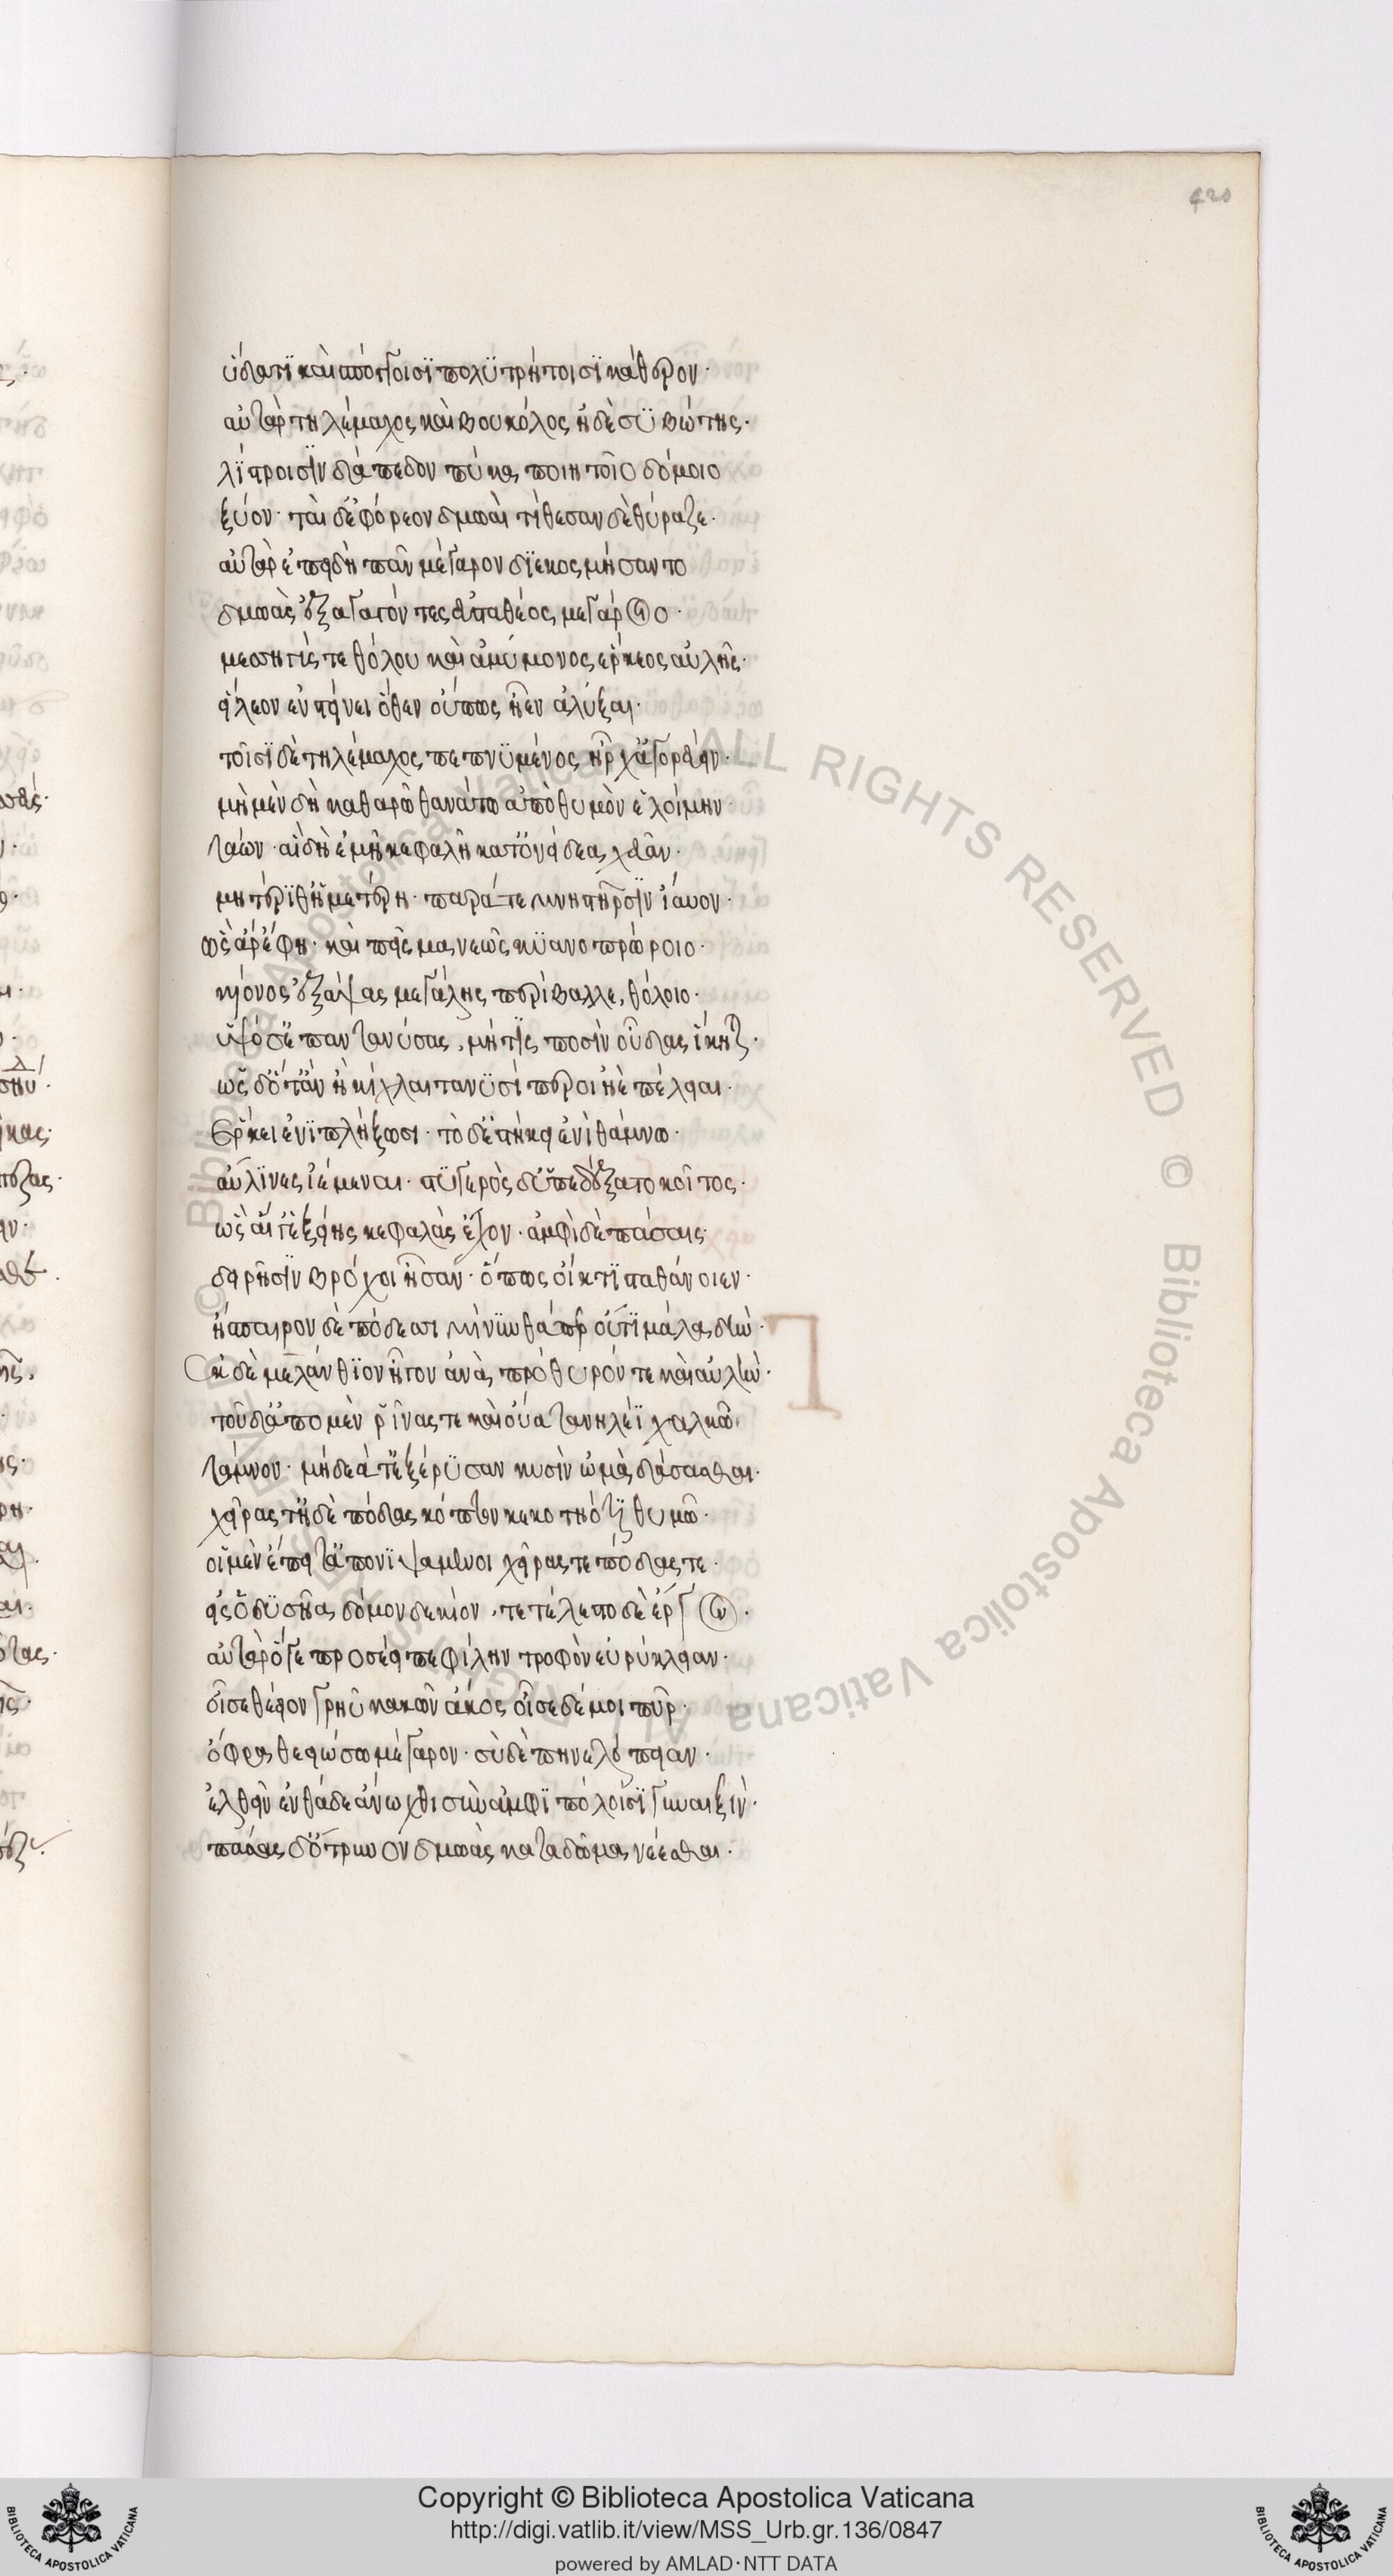 420
ὕδατϊ καὶ σπόγγοισϊ πολϋτρήτοισϊ κάθαιρον·
αὐτὰρ τηλέμαχος καὶ βουκόλος ἠδὲ σϋβώτης·
λΐστροισϊν δάπεδον πύκα ποιητοῖο δόμοιο
ξύον· ταὶ δ' ἐφόρεον δμωαὶ τίθεσαν δὲ θύραζε·
αὐτὰρ ἐπειδὴ πᾶν μέγαρον διεκοσμήσαντο
δμωὰς ἐξαγαγόντες ἐϋσταθέος μεγάροιο·
μεσηγύς τε θόλου καὶ ἀμύμονος ἕρκεος αὐλῆς·
εἴλεον ἐν στείνει ὅθεν οὔπως ἦεν ἀλύξαι·
τοῖσϊ δὲ τηλέμαχος πεπνϋμένος ἦρχ' ἀγορεύειν·
μὴ μὲν δὴ καθαρῶ θανάτω ἀπὸ θυμὸν ἑλοίμην·
τάων· αἳ δὴ ἐμῆ κεφαλῆ κατ' ὀνείδεα χεῦαν·
μητέρϊ θ' ἡμετέρη· παρά τε μνηστῆρσϊν ἴαυον·
ὣς ἄρ' ἔφη· καὶ πεῖσμα νεὼς κϋανοπρώροιο·
κίονος ἐξάψας μεγάλης περίβαλλε, θόλοιο·
ὑψόσ' ἐπαντανύσας, μήτϊς ποσὶν οὖδας ἵκηται·
ὡς δ' ὅταν ἢ κίχλαι τανϋσίπεροι ἠὲ πέλειαι·
ἕρκει ἐνϊπλήξωσι· τὸ δ' ἑστήκει ἐνὶ θάμνω·
αὖλϊν ἐσϊέμεναι· στϋγερὸς δ' ὑπεδέξατο κοῖτος·
ὣς αἵ γ' ἑξείης κεφαλὰς ἔχον· ἀμφὶ δὲ πάσαις
δειρῆσϊν βρόχοι ἦσαν· ὅπως οἴκτϊστα θάνοιεν·
ἤσπαιρον δὲ πόδεσσι μίνυνθά περ οὔτϊ μάλα δήν·
ἐκ δὲ μελάνθϊον ἦγον ἀνὰ πρόθυρόν τε καὶ αὐλήν·
τοῦ δ' ἀπὸ μὲν ῥῖνάς τε καὶ οὔατα νηλέϊ χαλκῶ·
τάμνον· μήδεά τ' ἐξέρϋσαν κυσὶν ὠμὰ δάσασθαι·
χεῖρας τ' ἠδὲ πόδας κόπτον κεκοτηότϊ θυμῶ·
οἳ μὲν ἔπειτ' ἀπονϊψάμενοι χεῖράς τε πόδας τε·
εἰς ὀδϋσῆα δόμον δε κίον, τετέλεστο δὲ ἔργον·
αὐτὰρ ὅγε προσέειπε φίλην τροφὸν εὐρύκλειαν·
οἶσε θέειον γρηῢ κακῶν ἄκος οἶσε δέ μοι πῦρ·
ὄφρα θεειώσω μέγαρον· σὺ δὲ πηνελόπειαν·
ἐλθεῖν ἐνθάδε ἄνωχθι σὺν ἀμφϊπόλοισϊ γυναιξίν·
πάσας δ' ὄτρυνον δμωὰς κατὰ δῶμα νέεσθαι·
© Biblioteca Apostolica Vaticana ALL RIGHTS RESERVED © Biblioteca Apostolica Vaticana
Copyright © Biblioteca Apostolica Vaticana
http://digi.vatlib.it/view/MSS_Urb.gr.136/0847
powered by AMLAD·NTT DATA
BIBLIOTECA APOSTOLICA VATICANA
BIBLIOTECA APOSTOLICA VATICANA